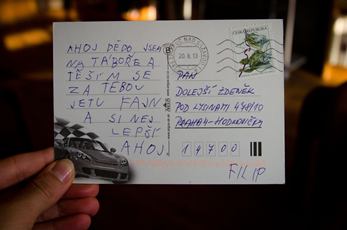 AHOJ DĚDO, JSEM
NA TÁBOŘE A
TĚŠÍM SE
ZA TEBOU
JETU FAJN
A SI NEJ
LEPŠÍ
AHOJ
FILIP
ČESKÁ REPUBLIKA
20.8.13
PAN
DOLEJŠÍ ZDENĚK
POD LYSINAMI
PRAHA 4 - HODKOVIČKY
14700